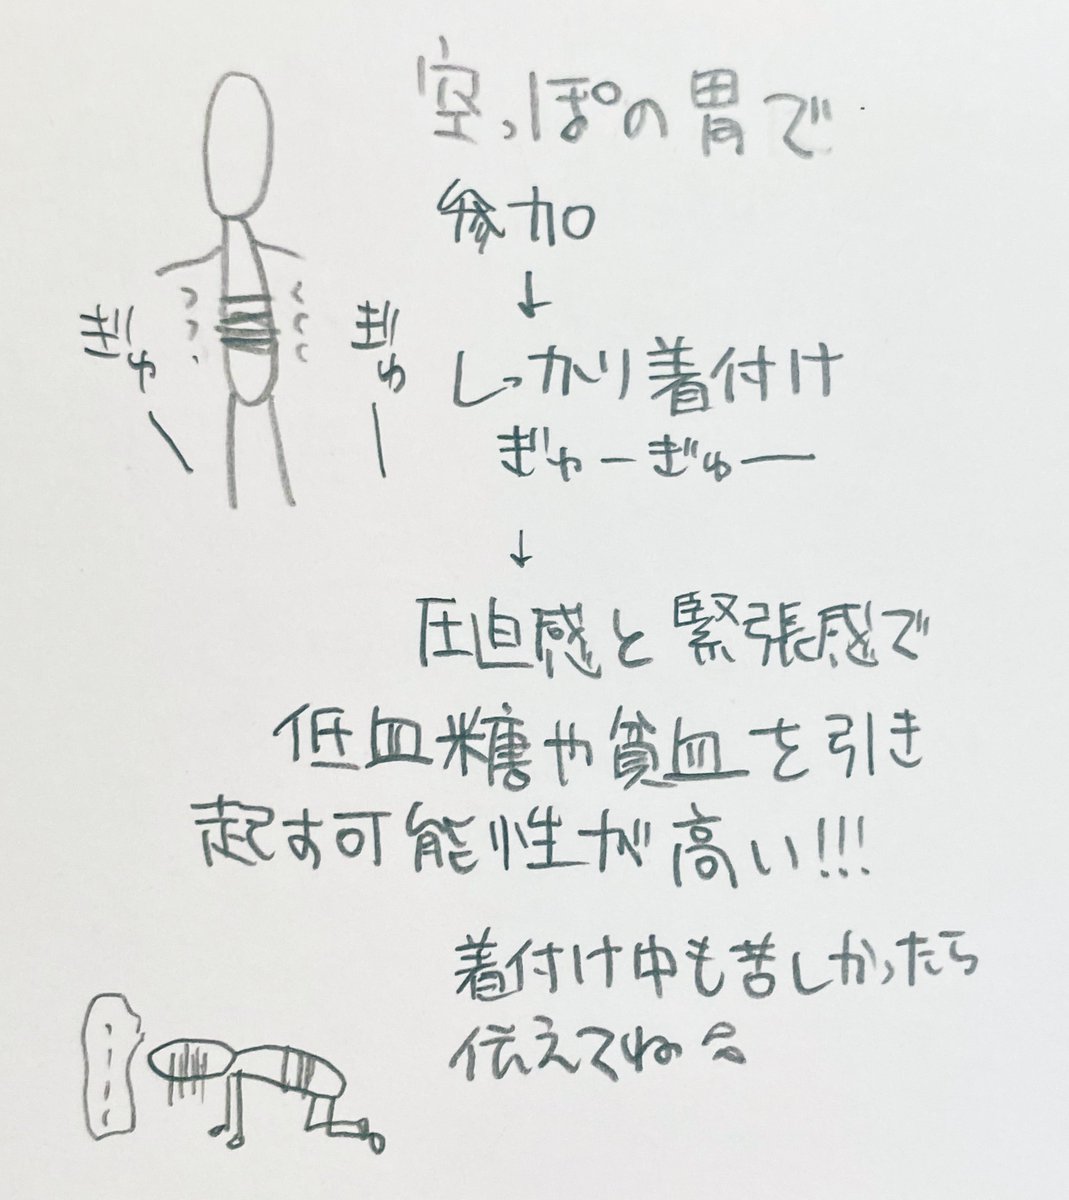 空っぽの胃で
参加
↓
しっかり着付け
ぎゅーぎゅー
ぎゅー
ぎゅー
↓
圧迫感と緊張感で
低血糖や貧血を引き
起す可能性が高い!!!
着付け中も苦しかったら
伝えてね